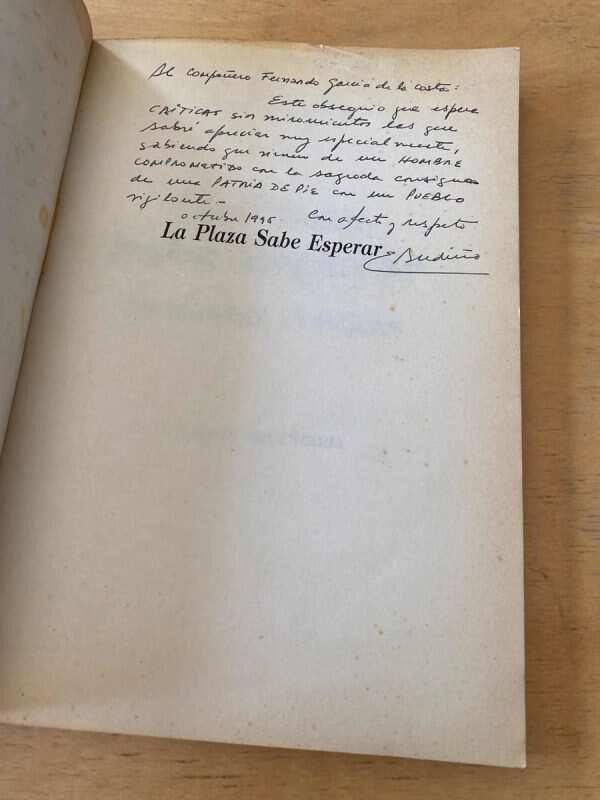 Al Compañero Fernando García de la Costa:
Este obsequio que espera
CRÍTICAS sin miramientos las que
sabré apreciar muy especialmente,
sabiendo que vienen de un HOMBRE
COMPROMETIDO con la sagrada consigna
de una PATRIA DE PIE con un PUEBLO
vigilante.-
octubre 1995. Con afecto y respeto
La Plaza Sabe Esperar